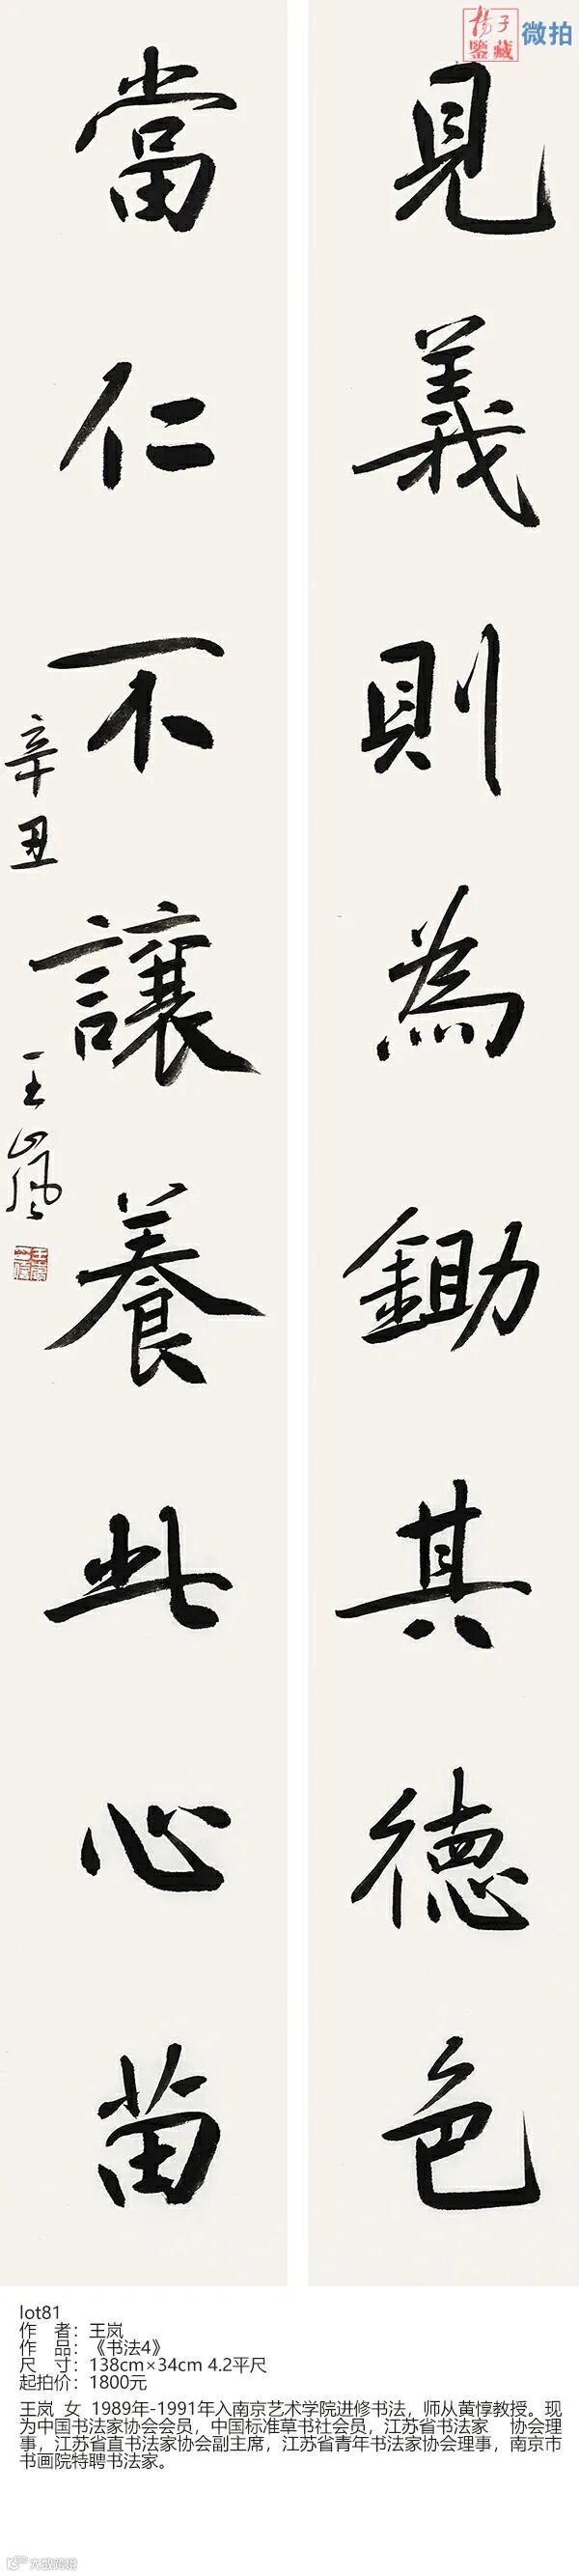 揚子
鑒藏
微拍
見義則為鋤其德色
當仁不讓養此心苗
辛丑
王嵐
lot81
作 者：王岚
作 品：《书法4》
尺 寸：138cm×34cm 4.2平尺
起拍价：1800元
王岚 女 1989年-1991年入南京艺术学院进修书法，师从黄惇教授。现
为中国书法家协会会员，中国标准草书社会员，江苏省书法家 协会理
事，江苏省直书法家协会副主席，江苏省青年书法家协会理事，南京市
书画院特聘书法家。